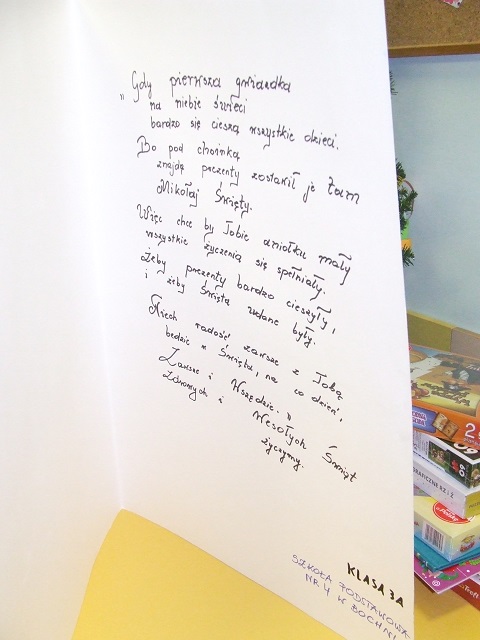 Gdy pierwsza gwiazdka
„ na niebie świeci
bardzo się cieszą wszystkie dzieci.
Bo pod choinką
znajdą prezenty zostawił je tam
Mikołaj Święty.
Więc chcę by Tobie aniołku mały
wszystkie życzenia się spełniały.
Żeby prezenty bardzo cieszyły,
i żeby Święta udane były.
Niech radość zawsze z Tobą
będzie w Święta, na co dzień,
Zawsze i Wszędzie. "
Zdrowych i Wesołych Świąt
życzymy.
KLASA 3A
SZKOŁA PODSTAWOWA
NR 4 W BOCHNI